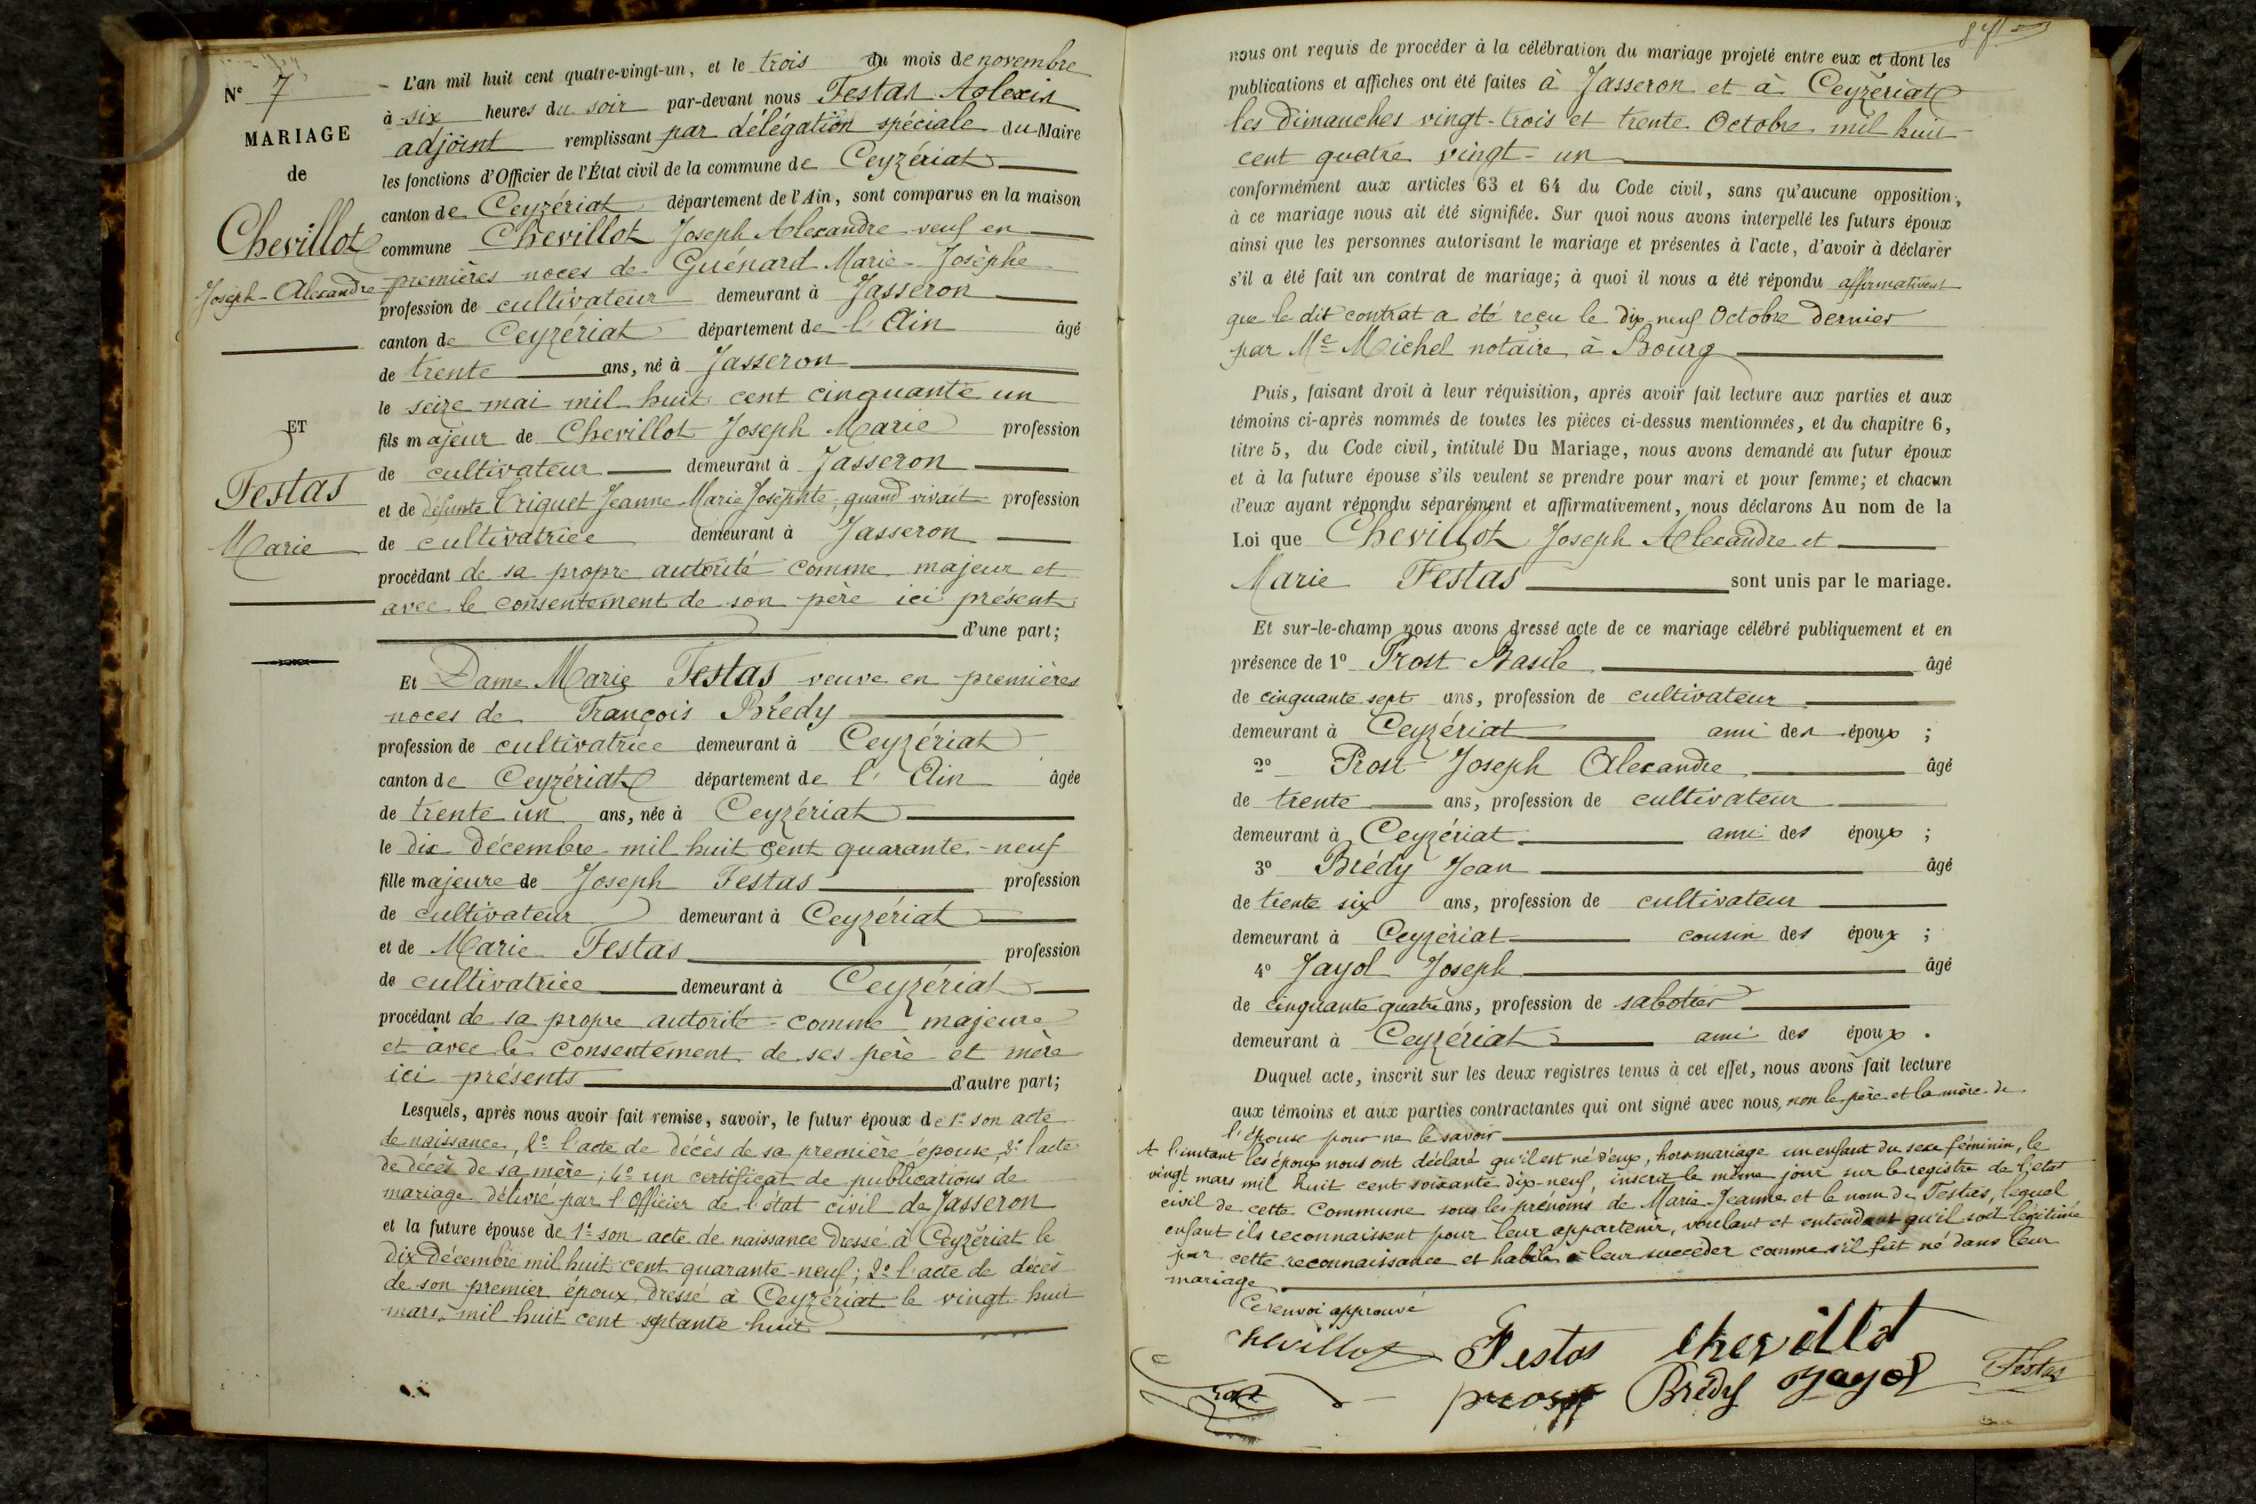 N° 7
MARIAGE
de
Chevillot
Joseph-Alexandre
ET
Festas
Marie
L'an mil huit cent quatre-vingt-un, et le trois du mois de novembre
à six heures du soir par-devant nous Festas Alexis
adjoint remplissant par délégation spéciale du Maire
les fonctions d'Officier de l'État civil de la commune de Ceyzériat
canton de Ceyzériat département de l'Ain, sont comparus en la maison
commune Chevillot Joseph Alexandre veuf en
premières noces de Guénard Marie-Josèphe
profession de cultivateur demeurant à Jasseron
canton de Ceyzériat département de l'Ain âgé
de trente ans, né à Jasseron
le seize mai mil huit cent cinquante un
fils majeur de Chevillot Joseph Marie profession
de cultivateur demeurant à Jasseron
et de défunte Triquet Jeanne Marie Josephte, quand vivait profession
de cultivatrice demeurant à Jasseron
procédant de sa propre autorité comme majeur et
avec le consentement de son père ici présent
d'une part;
Et Dame Marie Festas veuve en premières
noces de François Brédy
profession de cultivatrice demeurant à Ceyzériat
canton de Ceyzériat département de l'Ain âgée
de trente un ans, née à Ceyzériat
le dix décembre mil huit cent quarante-neuf
fille majeure de Joseph Festas profession
de cultivateur demeurant à Ceyzériat
et de Marie Festas profession
de cultivatrice demeurant à Ceyzériat
procédant de sa propre autorité comme majeure
et avec le consentement de ses père et mère
ici présents d'autre part;
Lesquels, après nous avoir fait remise, savoir, le futur époux de 1° son acte
de naissance, 2° l'acte de décès de sa première épouse, 3° l'acte
de décès de sa mère; 4° un certificat de publications de
mariage délivré par l'Officier de l'état civil de Jasseron
et la future épouse de 1° son acte de naissance dressé à Ceyzériat le
dix décembre mil huit cent quarante-neuf; 2° l'acte de décès
de son premier époux dressé à Ceyzériat le vingt-huit
mars mil huit cent septante huit
nous ont requis de procéder à la célébration du mariage projeté entre eux et dont les
publications et affiches ont été faites à Jasseron et à Ceyzériat
les dimanches vingt-trois et trente Octobre mil huit
cent quatre vingt-un
conformément aux articles 63 et 64 du Code civil, sans qu'aucune opposition,
à ce mariage nous ait été signifiée. Sur quoi nous avons interpellé les futurs époux
ainsi que les personnes autorisant le mariage et présentes à l'acte, d'avoir à déclarer
s'il a été fait un contrat de mariage; à quoi il nous a été répondu affirmativent
que le dit contrat a été reçu le dix-neuf Octobre dernier
par Me Michel notaire à Bourg
Puis, faisant droit à leur réquisition, après avoir fait lecture aux parties et aux
témoins ci-après nommés de toutes les pièces ci-dessus mentionnées, et du chapitre 6,
titre 5, du Code civil, intitulé Du Mariage, nous avons demandé au futur époux
et à la future épouse s'ils veulent se prendre pour mari et pour femme; et chacun
d'eux ayant répondu séparément et affirmativement, nous déclarons Au nom de la
Loi que Chevillot Joseph Alexandre et
Marie Festas sont unis par le mariage.
Et sur-le-champ nous avons dressé acte de ce mariage célébré publiquement et en
présence de 1° Prost Basile âgé
de cinquante sept ans, profession de cultivateur
demeurant à Ceyzériat ami des époux ;
2° Prost Joseph Alexandre âgé
de trente ans, profession de cultivateur
demeurant à Ceyzériat ami des époux ;
3° Brédy Jean âgé
de trente six ans, profession de cultivateur
demeurant à Ceyzériat cousin des époux ;
4° Jayol Joseph âgé
de cinquante quatre ans, profession de sabotier
demeurant à Ceyzériat ami des époux.
Duquel acte, inscrit sur les deux registres tenus à cet effet, nous avons fait lecture
aux témoins et aux parties contractantes qui ont signé avec nous, non le père et la mère de
l'épouse pour ne le savoir
A l'instant les époux nous ont déclaré qu'il est né d'eux, hors mariage un enfant du sexe féminin, le
vingt mars mil huit cent soixante dix-neuf, inscrit le même jour sur le registre de l'état
civil de cette Commune sous les prénoms de Marie-Jeanne et le nom de Festas, lequel
enfant ils reconnaissent pour leur appartenir, voulant et entendant qu'il soit légitimé
par cette reconnaissance et habile à leur succéder comme s'il fut né dans leur
mariage
Ce renvoi approuvé
chevillot Festas chevillot
prost Brédy Jayol Festas